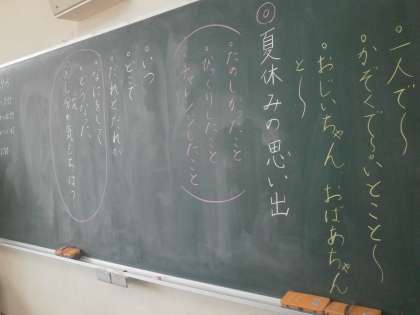 ◎夏休みの思い出
・一人で〜
・かぞくで〜・いとこと〜
・おじいちゃん、おばあちゃんと〜
・たのしかったこと
・びっくりしたこと
・チャレンジしたこと
・いつ
・どこで
・だれとだれが
・なにをして
・どうだった